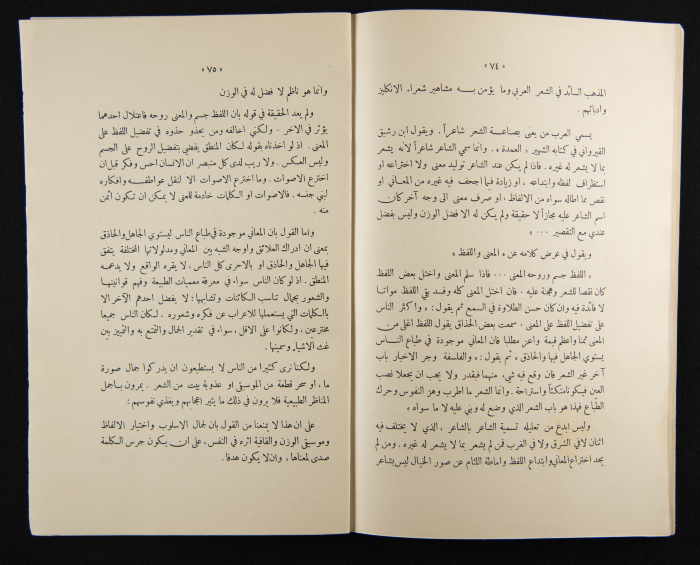 « ٧٤ »
المذهب السائد في الشعر العربي وما يؤمن بـــه مشاهير شعراء الانكليز
وادبائهم .
يسمي العرب من يعنى بصناعة الشعر شاعراً . ويقول ابن رشيق
القيرواني في كتابه الشهير « العمدة » . وانما سمي الشاعر شاعراً لأنه يشعر
بما لا يشعر له غيره . فاذا لم يكن عند الشاعر توليد معنى ولا اختراعه او
استظراف لفظه وابتداعه ، او زيادة فيما اجحف فيه غيره من المعـاني او
نقص مما اطاله سواه من الالفاظ ، او صرف معنى الى وجه آخر كان
اسم الشاعر عليه مجازاً لا حقيقة ولم يكن له الا فضل الوزن وليس بفضل
عندي مع التقصير ٠٠٠ »
ويقول في عرض كلامه عن « المعنى واللفظ »
« اللفظ جسم وروحه المعنى ٠٠٠ فاذا سلم المعنى واختل بعض اللفظ
كان نقصا للشعر وهجنة عليه . فان اختل المعنى كله وفسد بقي اللفظ مواتا
لا فائدة فيه وان كان حسن الطلاوة في السمع ثم يقول : « واكثر الناس
على تفضيل اللفظ على المعنى . سمعت بعض الحذاق يقول اللفظ أغلى من
المعنى ثمنا واعظم قيمة واعز مطلبا فان المعاني موجودة في طباع النـــاس
يستوي الجاهل فيها والحاذق » ثم يقول : « والفلسفة وجر الاخبار باب
آخر غير الشعر فان وقع فيه شيء منهما فبقدر ولا يجب ان يجعلا نصب
العين فيكونا متكئاً واستراحة . وانما الشعر ما اطرب وهز النفوس وحرك
الطباع فهذا هو باب الشعر الذي وضع له وبني عليه لا ما سواه »
وليس ابدع من تعليله تسمية الشاعر بالشاعر ، الذي لا يختلف فيه
اثنان لا في الشرق ولا في الغرب فمن لم يشعر بما لا يشعر له غيره . ومن لم
يجد اختراع المعاني وابتداع اللفظ واماطة اللثام عن صور الخيال ليس بشاعر
« ٧٥ »
وانما هو ناظم لا فضل له في الوزن
ولم يعد الحقيقة في قوله بان اللفظ جسم والمعنى روحه فاعتلال احدهما
يؤثر في الاخر . ولكني اخالفه ومن يحذو حذوه في تفضيل اللفظ على
المعنى . اذ لو اخذناه بقوله لكان المنطق يقضي بتفضيل الروح على الجسم
وليس العكس . ولا ريب لدى كل متبصر ان الانسان احس وفكر قبل ان
اخترع الاصوات . وما اخترع الاصوات الا لنقل عواطفـــه وافكاره
لبني جنسه . فالاصوات او الكلمات خادمة للمعنى لا يمكن ان تكون اثمن
منه .
واما القول بان المعاني موجودة في طباع الناس ليستوي الجاهل والحاذق
بمعنى ان ادراك العلائق واوجه الشبه بين المعاني ومدلولاتها المختلفة يتفق
فيها الجاهل والحاذق او بالاحرى كل الناس . لا يقره الواقع ولا يدعمـه
المنطق . اذ لو كان الناس سواء في معرفة معميات الطبيعة وفهم قوانينهـا
والشعور بجمال تناسب الكائنات وتشابهها ؛ لا يفضل احدهم الآخر الا
بالكلمات التي يستعملها للاعراب عن فكره وشعوره . لكان الناس جميعا
مخترعين ، ولكانوا على الاقل ، سواء في تقدير الجمال والتمتع به والتمييز بين
غث الاشياء وسمينها .
ولكننا نرى كثيرا من الناس لا يستطيعون ان يدركوا جمال صورة
ما ، او سحر قطعة من الموسيقى او عذوبة بيت من الشعر . يمرون باجمل
المناظر الطبيعية فلا يرون في ذلك ما يثير اعجابهم ويغذي نفوسهم :
على ان هذا لا يمنعنا من القول بان لجمال الاسلوب واختيار الالفاظ
وموسيقى الوزن والقافية اثره في النفس ، على ان يكون جرس الكلمة
صدى لمعناها ، وان لا يكون هدفا .